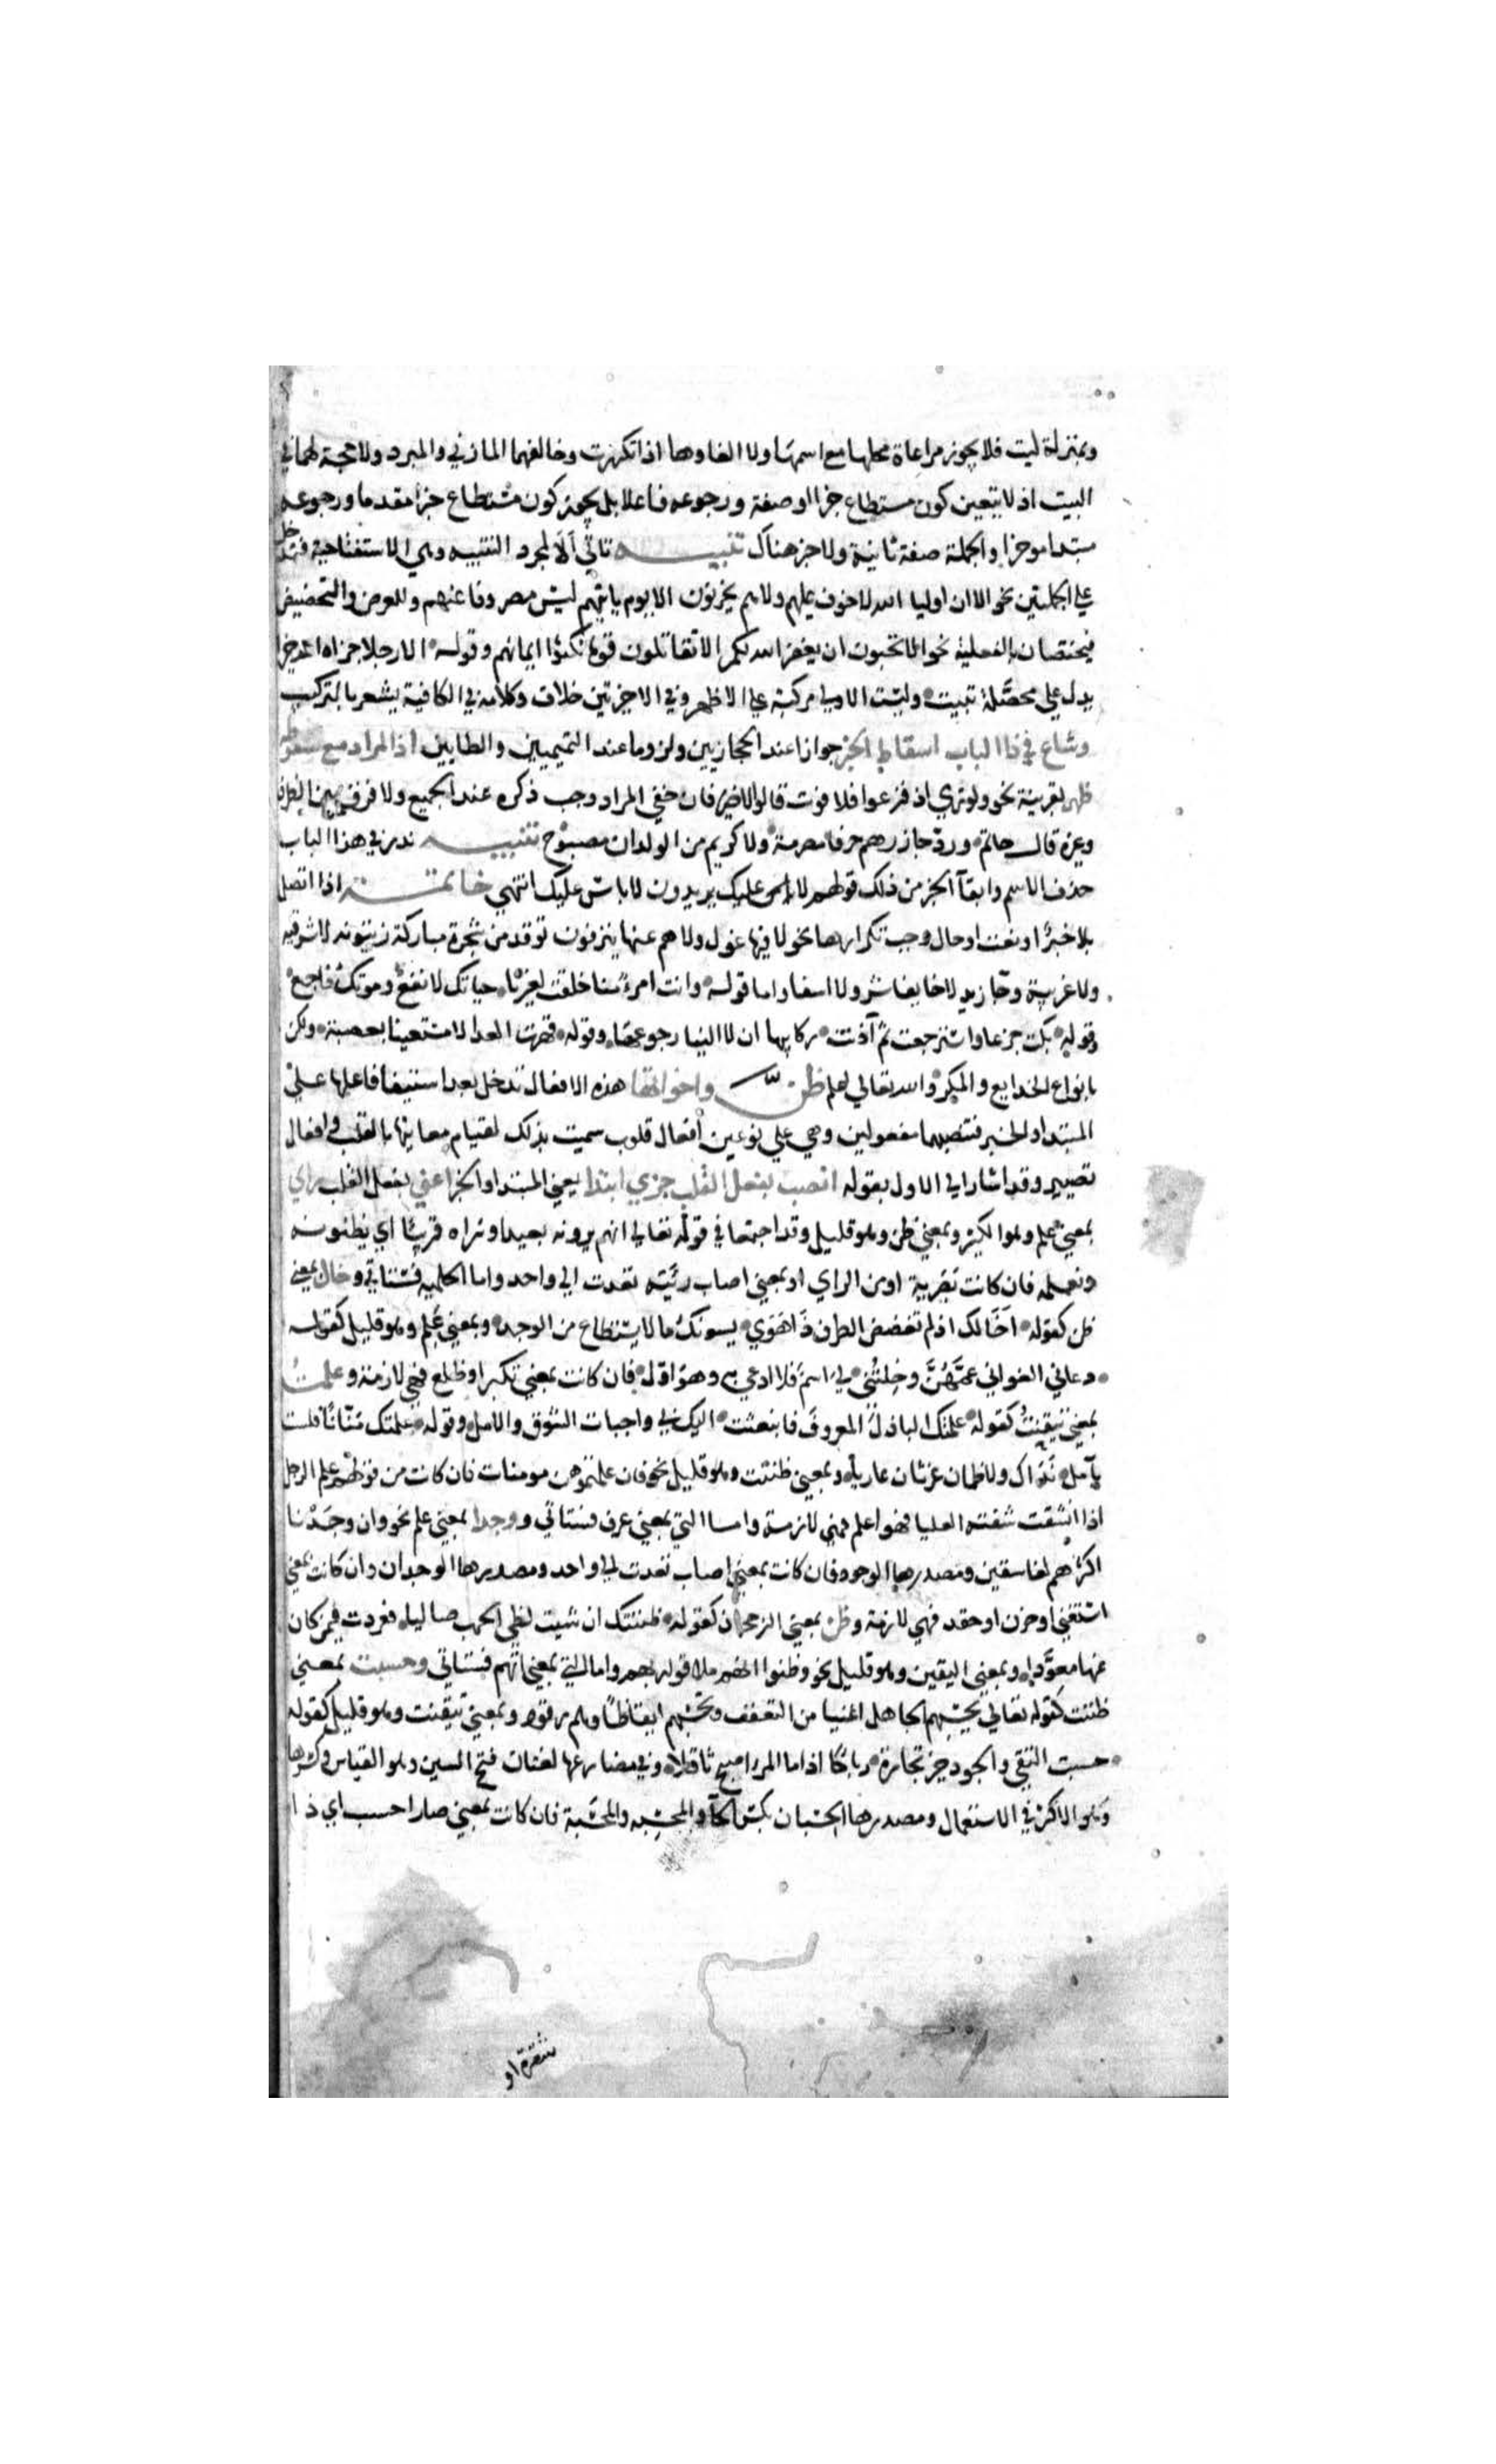 وبمنزلة ليت فلا يجوز مراعاة محلها مع اسمها ولا الغاوها اذا تكررت وخالفهما المازني والمبرد ولا حجة لهما في
البيت اذ لا يتعين كون مستطاع خبرا او صفة ورجوعه فاعلا بل يجوز كون مستطاع خبرا مقدما ورجوعه
مبتدا موخرا والجملة صفة ثانية ولا خبر هناك تنبيه تاتي الا لمجرد التنبيه وهي الاستفتاحية فتدخل
علي الجملتين نحو الا ان اوليا الله لا خوف عليهم ولا هم يحزنون الا يوم ياتيهم ليس مصروفا عنهم وللعرض والتحضيض
فيختصان بالفعلية نحو الا تحبون ان يغفر الله لكم الا تقاتلون قوما نكثوا ايمانهم وقوله الا رجلا جزاه الله خيرا
يدل علي محصلة تبيت وليست الاولي مركبة علي الاظهر وفي الاخيرتين خلاف وكلامه في الكافية يشعر بالتركيب
وشاع في ذا الباب اسقاط الخبر جوازا عند الحجازيين ولزوما عند التميميين والطايين اذا المراد مع سقوطه
ظهر لقرينة نحو ولو تري اذ فزعوا فلا فوت قالوا لا ضير فان خفي المراد وجب ذكره عند الجميع ولا فرق بين الظرف
وغيره قال حاتم ورد جازرهم حرفا مصرمة ولا كريم من الولدان مصبوح تنبيه ندر في هذا الباب
حذف الاسم وابقآ الخبر من ذلك قولهم لا عليك يريدون لا باس عليك انتهي خاتمة اذا اتصل
بلا خبر او نعت او حال وجب تكرارها نحو لا فيها غول ولا هم عنها ينزفون توقد من شجرة مباركة زيتونه لا شرقيه
ولا غربية وجا زيد لا خايفا ولا اسفا واما قوله وانت امرء منا خلقت لغيرنا حياتك لا نفع وموتك فاجع
وقوله بكت جزعا واسترجعت ثم آذنت ركايبها ان لا الينا رجوعها وقوله قهرت العدا لا مستعينا بعصبة ولكن
بانواع الخدايع والمكر والله تعالي اعلم ظن واخواتها هذه الافعال تدخل بعد استيفا فاعلها علي
المبتدا والخبر فتنصبهما مفعولين وهي علي نوعين افعال قلوب سميت بذلك لقيام معانيها بالقلب وافعال
تصيير وقد اشار الي الاول بقوله انصب بفعل القلب جزي ابتدا يعني المبتدا والخبر اعني بفعل القلب راي
بمعني علم وهو الكثير وبمعني ظن وهو قليل وقد اجتمعا في قوله تعالي انهم يرونه بعيدا ونراه قريبا اي يظنونه
ونعلمه فان كانت بصرية او من الراي او بمعني اصاب رئيته تعدت الي واحد واما الحلمية فستاتي وخال بمعني
ظن كقوله اخالك ان لم تغضض الطرف ذا هوي يسومك ما لا يستطاع من الوجد وبمعني علم وهو قليل كقوله
دعاني الغواني عمهن وخلتني لي اسم فلا ادعي به وهو اول فان كانت بمعني تكبر او ظلع فهي لازمة وعلمت
بمعني تيقنت كقوله علمتك الباذل المعروف فانبعثت اليك بي واجبات الشوق والامل وقوله علمتك منانا فلست
بآمل نداك ولا ظمان غرثان عاريا وبمعني ظننت وهو قليل نحو فان علمتموهن مومنات فان كانت من قولهم علم الرجل
اذا انشقت شفته العليا فهو اعلم فهي لازمة واما التي بمعني عرف فستاتي ووجدا بمعني علم نحو وان وجدنا
اكثرهم لفاسقين ومصدرها الوجود فان كانت بمعني اصاب تعدت لي واحد ومصدرها الوجدان وان كانت بمعني
استغني او حزن او حقد فهي لازمة وظن بمعني الرجحان كقوله ظننتك ان شبت لظي الحرب صاليا فعردت فيمن كان
عنها معردا وبمعني اليقين وهو قليل نحو وظنوا انهم ملاقوا ربهم واما التي بمعني اتهم فستاتي وحسبت بمعني
ظننت كقوله تعالي يحسبهم الجاهل اغنيا من التعفف وتحسبهم ايقاظا وهم رقود وبمعني تيقنت وهو قليل كقوله
حسبت التقي والجود خير تجارة رباحا اذا ما المرء اصبح ثاقلا وفي مضارعها لغتان فتح السين وهو القياس وكسرها
وهو الاكثر في الاستعمال ومصدرها الحسبان بكسر الحآ والمحسبه والمحسبة فان كانت بمعني صار احسب اي ذا
شقرة او